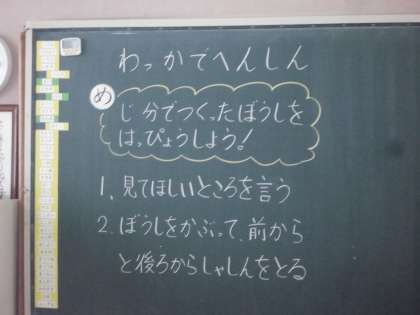 わっかでへんしん
め
じ分でつくったぼうしを
はっぴょうしよう!
1、見てほしいところを言う
2、ぼうしをかぶって、前から
と後ろからしゃしんをとる